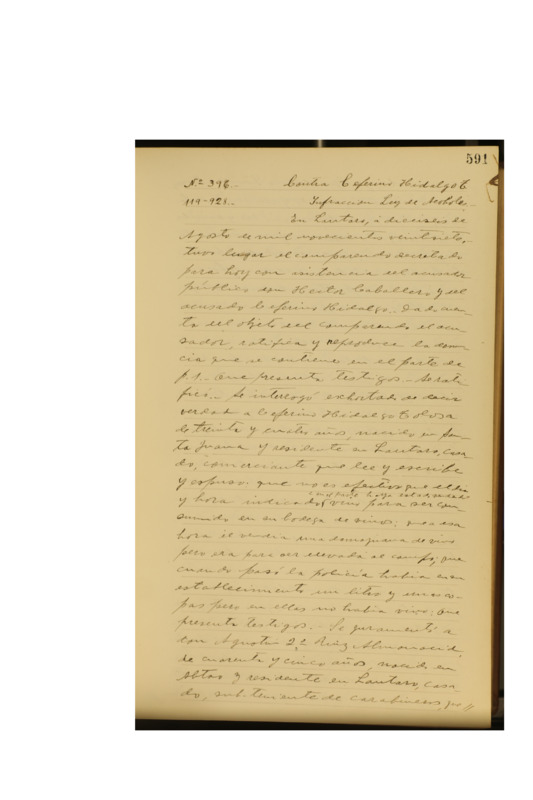 591
Nº 396.- Contra Ceferino Hidalgo C
119-921.- Infraccion Ley de Alcohole
En Lautaro, a dieciseis de
Agosto de mil novecientos veintisiete,
tuvo lugar el comparendo decretado
para hoy con asistencia del acusador
público don Hector Caballero y del
acusado Ceferino Hidalgo. Dada cuen-
ta del objeto del comparendo el acu-
sador, ratifica y reproduce la denun-
cia que se contiene en el parte de
f. 1.- Que presenta testigos.- Se rati-
ficó.- Se interrogó exhortado a decir
verdad a Ceferino Hidalgo
de treinta y cuatro años, nacido en San-
ta Juana y residente en Lautaro, casa
do, comerciante que lee y escribe
y expuso: que no es efectivo que el dia
y hora indicados vino para ser con
sumido en su bodega de vinos; que a esa
hora el vendia una damajuana de vino
pero era para ser llevada al campo; que
cuando pasó la policia habia en su
establecimiento un litro y unas co-
pas pero en ellas no habia vino; que
presenta testigos.- Se juramentó a
don Agustin 2º Ruiz Almonacid,
de cuarenta y cinco años, nacido en
y residente en Lautaro, casa
do, sub-teniente de carabineros, que //